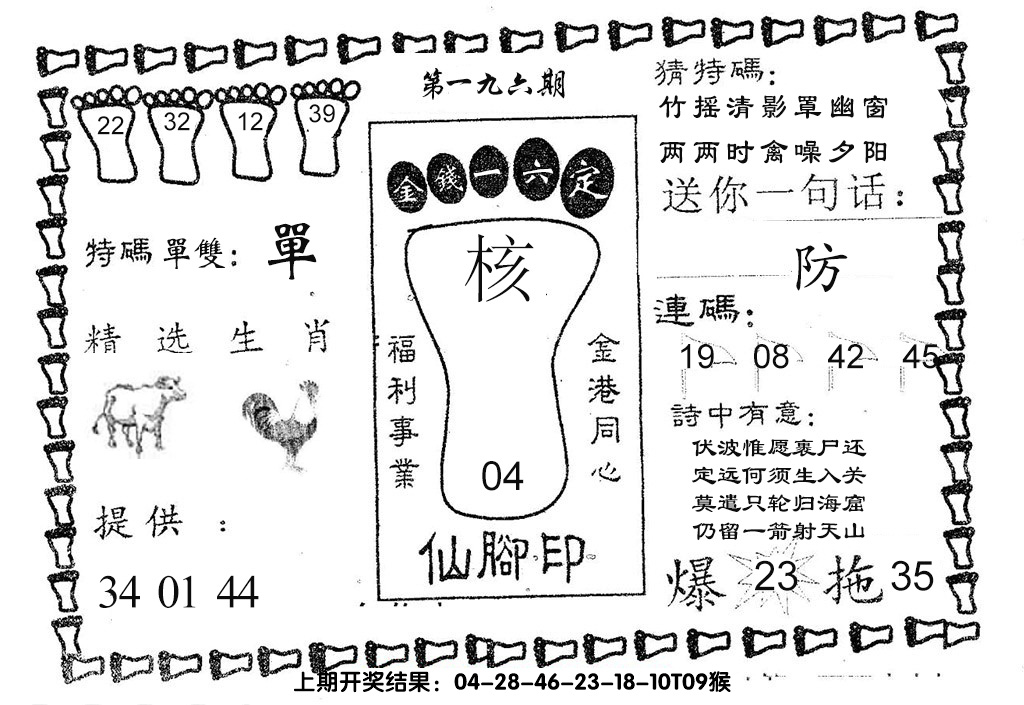 第一九六期
22 32 12 39
特碼單雙：單
精选生肖
提供：
34 01 44
金錢一六定
核
福利事業
金港同心
04
仙腳印
猜特碼：
竹摇清影罩幽窗
两两时禽噪夕阳
送你一句话：
防
連碼：
19 08 42 45
詩中有意：
伏波惟愿裹尸还
定远何须生入关
莫遣只轮归海窟
仍留一箭射天山
爆 23 拖 35
上期开奖结果：04-28-46-23-18-10T09猴